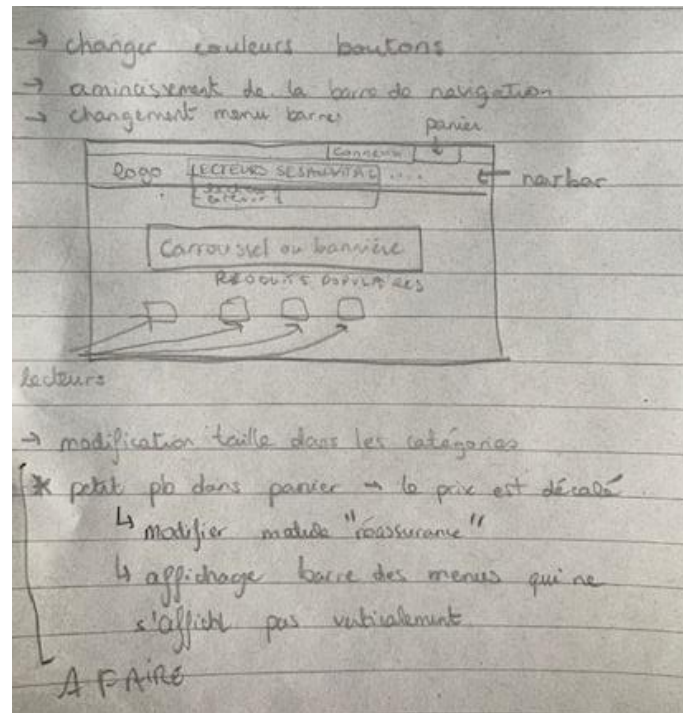 → changer couleurs boutons
→ amincissement de la barre de navigation
→ changement menu barres
panier
Connexion
logo LECTEURS SESAMVITAL ....
← navbar
Carroussel ou bannière
PRODUITS POPULAIRES
lecteurs
→ modification taille dans les catégories
* petit pb dans panier → le prix est décalé.
↳ modifier module "réassurance"
↳ affichage barre des menus qui ne
s'affiche pas verticalement
A FAIRE